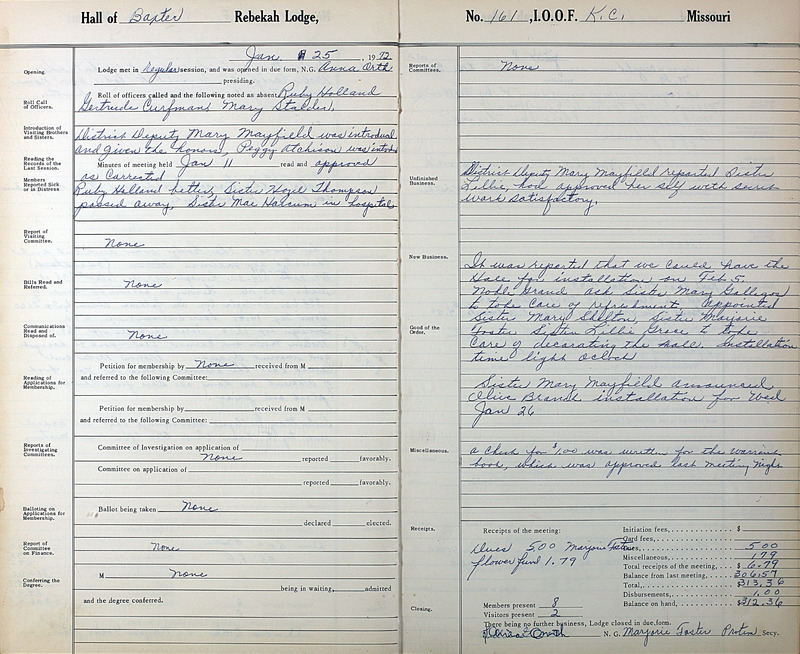 Hall of Baxter Rebekah Lodge,
Jan. 25, 1972
Opening.
Lodge met in regular session, and was opened in due form, N.G. Anna Orth
presiding.
Roll Call of Officers.
Roll of officers called and the following noted as absent Ruby Holland
Gertrude Curfman, Mary Stalder,
Introduction of Visiting Brothers and Sisters.
District Deputy Mary Mayfield was introduced
and given the honors, Peggy Atchison was introd
Reading the Records of the Last Session.
Minutes of meeting held Jan 11 read and approved
as Corrected
Members Reported Sick or in Distress
Ruby Holland better, Sister Hazel Thompson
passed away, Sister Mae Harcum in hospital
Report of Visiting Committee.
None
Bills Read and Referred.
None
Communications Read and Disposed of.
None
Reading of Applications for Membership.
Petition for membership by None received from M
and referred to the following Committee:
Petition for membership by received from M
and referred to the following Committee:
Reports of Investigating Committees.
Committee of Investigation on application of
None reported favorably.
Committee on application of
reported favorably.
Balloting on Applications for Membership.
Ballot being taken None
declared elected.
Report of Committee on Finance.
None
Conferring the Degree.
M None
being in waiting, admitted
and the degree conferred.
No. 161, I.O.O.F. K.C. Missouri
Reports of Committees.
None
Unfinished Business.
District Deputy Mary Mayfield reported Sister
Lillie, had approved her self with secret
work satisfactory.
New Business.
It was reported that we could have the
for installation on Feb, 5.
Noble Grand ask Sister Mary
to take care of refreshment, appointed
Good of the Order.
Sister Mary Shelton, Sister Marjorie
Foster Sister Lillie Grace to take
Care of decorating the hall. Installation
time light oclock
Sister Mary Mayfield announced
Olive Branch installation for Wed
Jan 26
Miscellaneous.
a Check for $1.00 was written for the warrent
book, which was approved last meeting night
Receipts.
Receipts of the meeting:
Dues 5.00 Marjorie Foster
flower fund 1.79
Initiation fees, $
Card fees,
Dues, 5 00
Miscellaneous, 1 79
Total receipts of the meeting, $ 6.79
Balance from last meeting, 306.57
Total, $313.36
Disbursements, 1.00
Balance on hand, $312.36
Members present 8
Visitors present 2
Closing.
There being no further business, Lodge closed in due form.
Anna Orth N. G. Marjorie Foster Protem Secy.